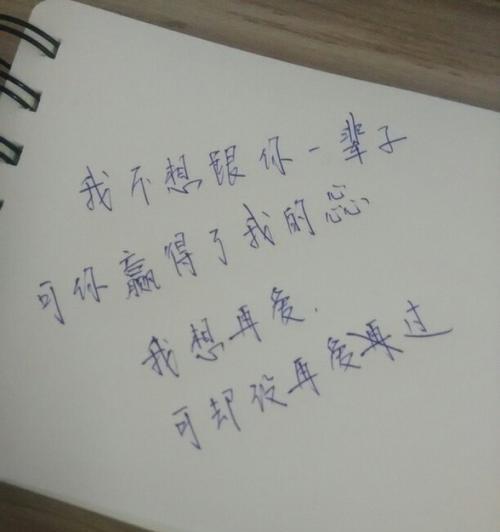 我不想跟你一辈子
可你赢得了我的惢
我想再爱.
可却没再爱再过